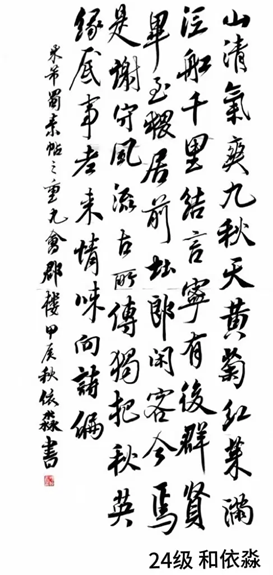 山清氣爽九秋天黄菊紅茱滿
泛船千里結言寧有後群賢
畢至猥居前杜郎閑客今焉
是謝守風流古所傳獨把秋英
緣底事老來情味向詩偏
米芾蜀素帖之重九會郡樓甲辰秋依淼書
24级 和依淼